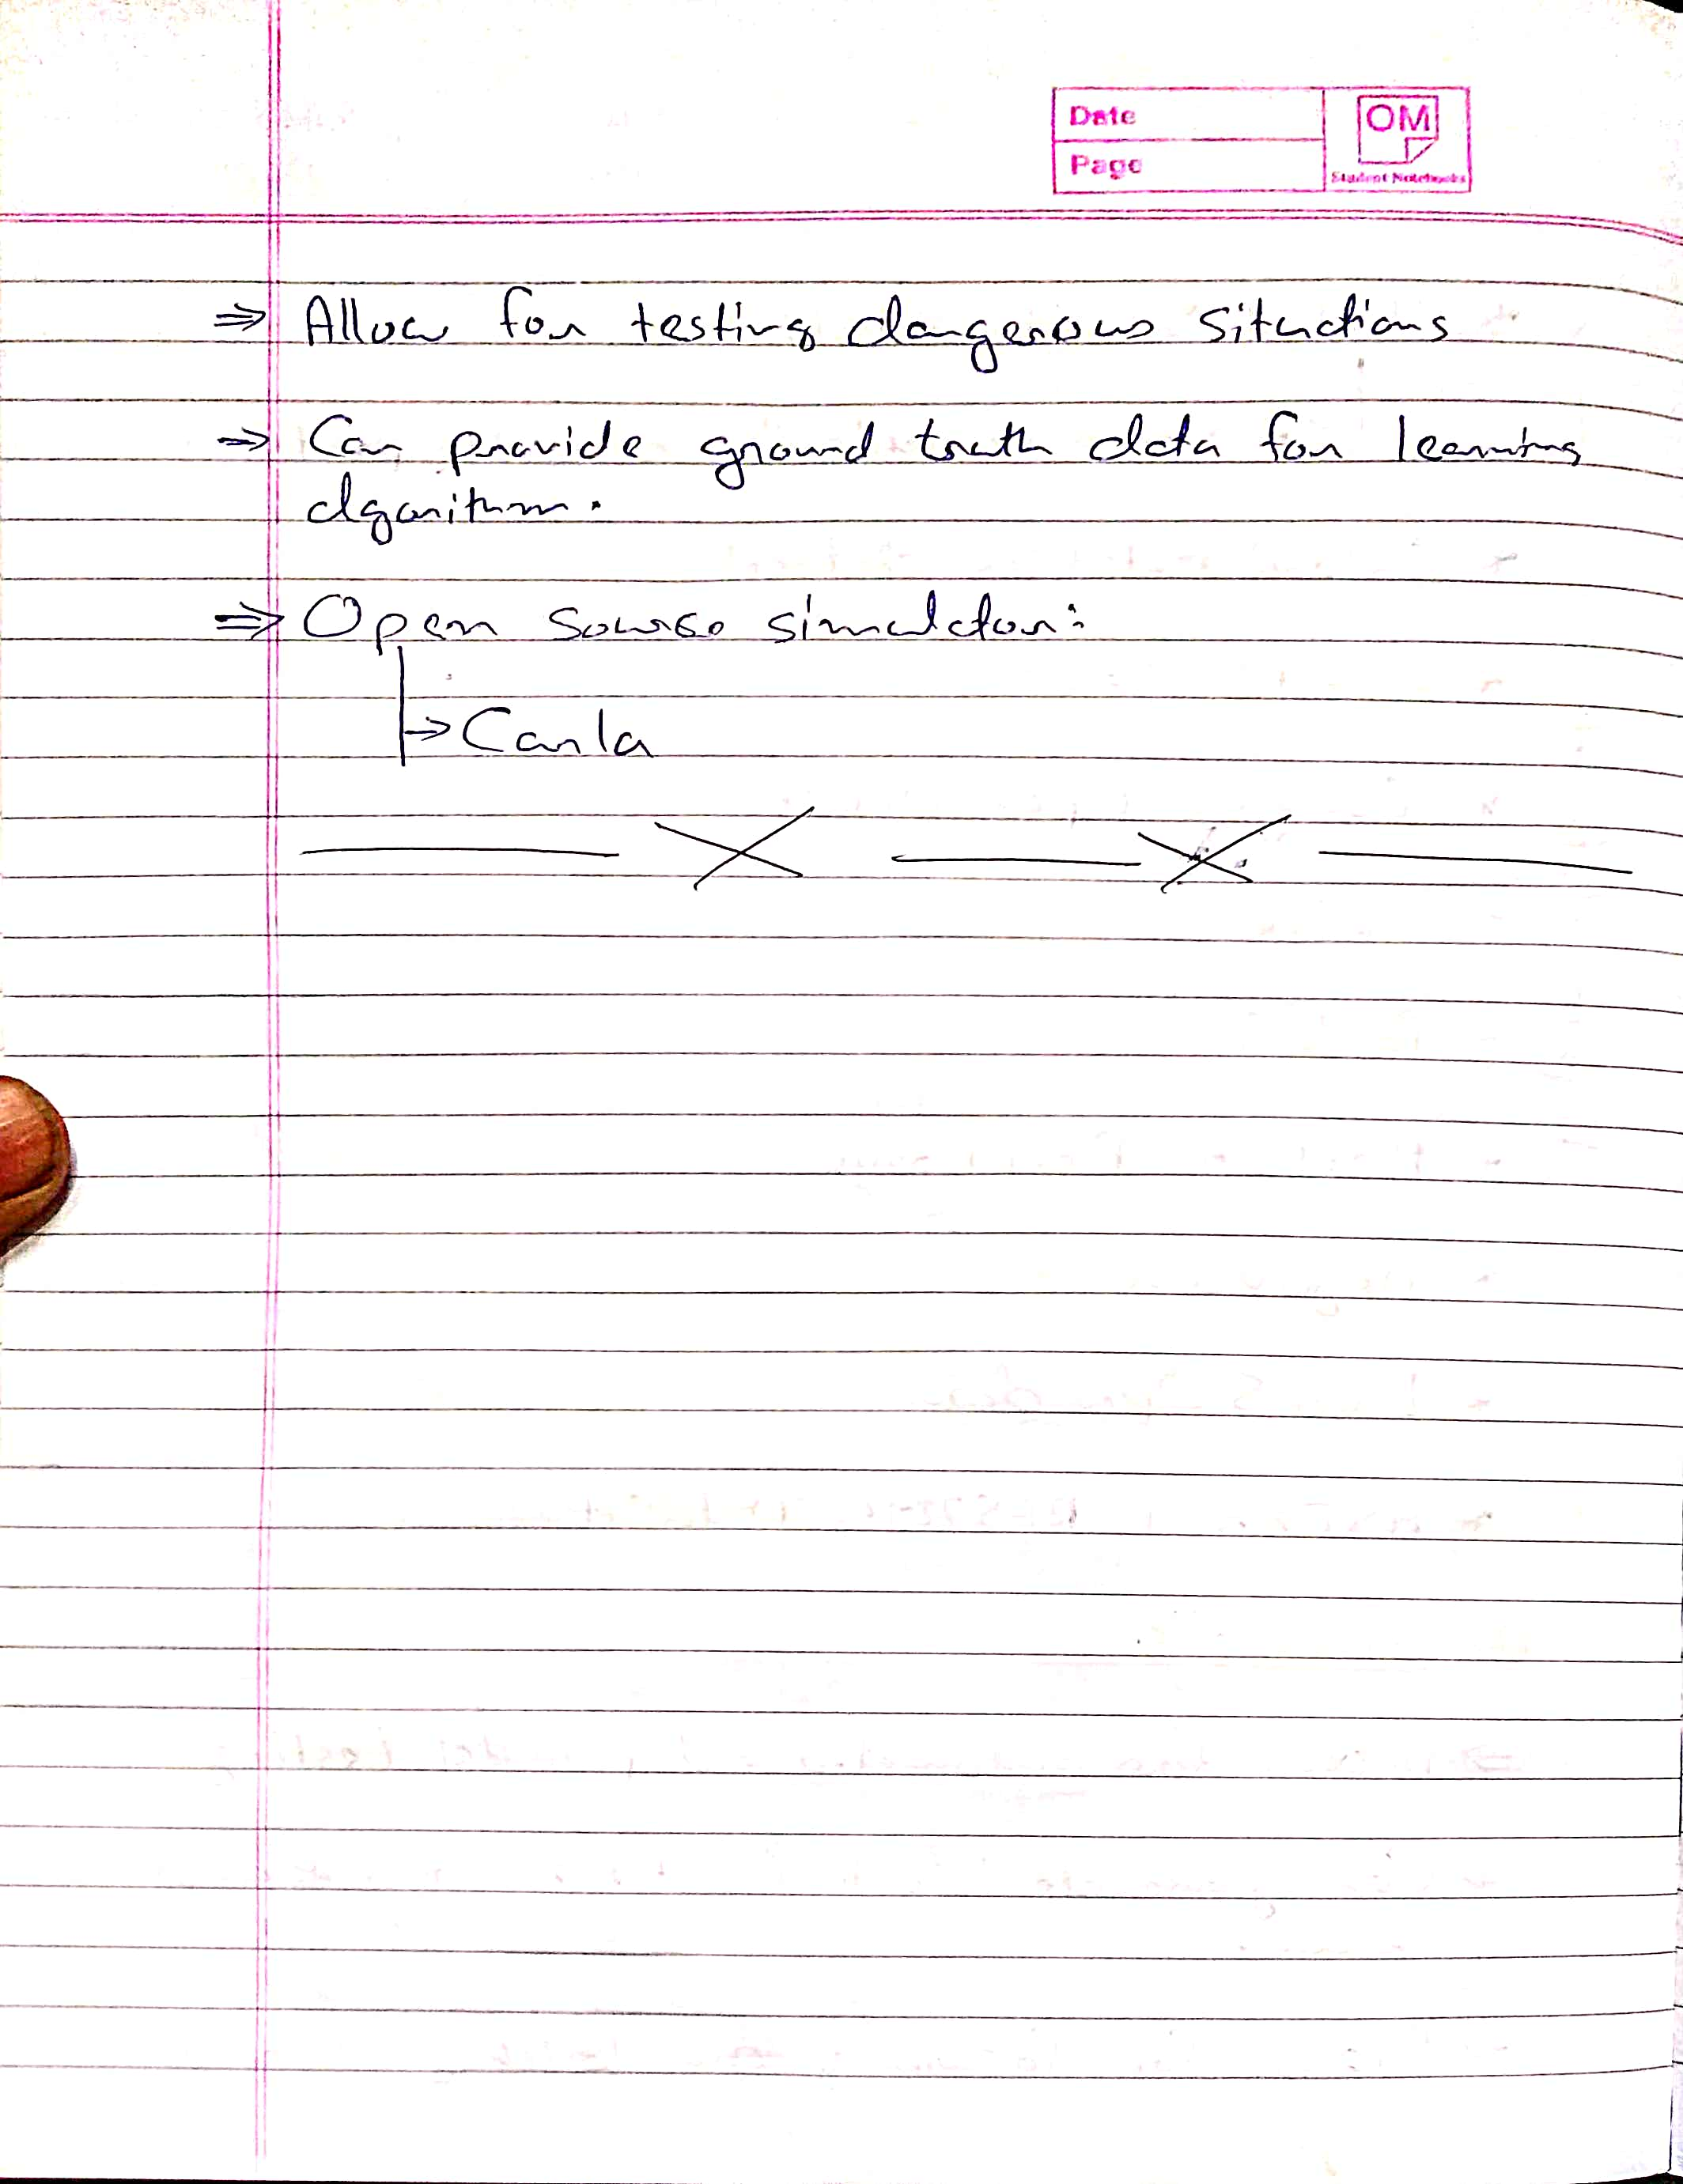 Date
Page
OM
Student Notebooks
⇒ Allow for testing dangerous situations
⇒ Can provide ground truth data for learning
algorithm.
⇒ Open source simulator:
→ Carla